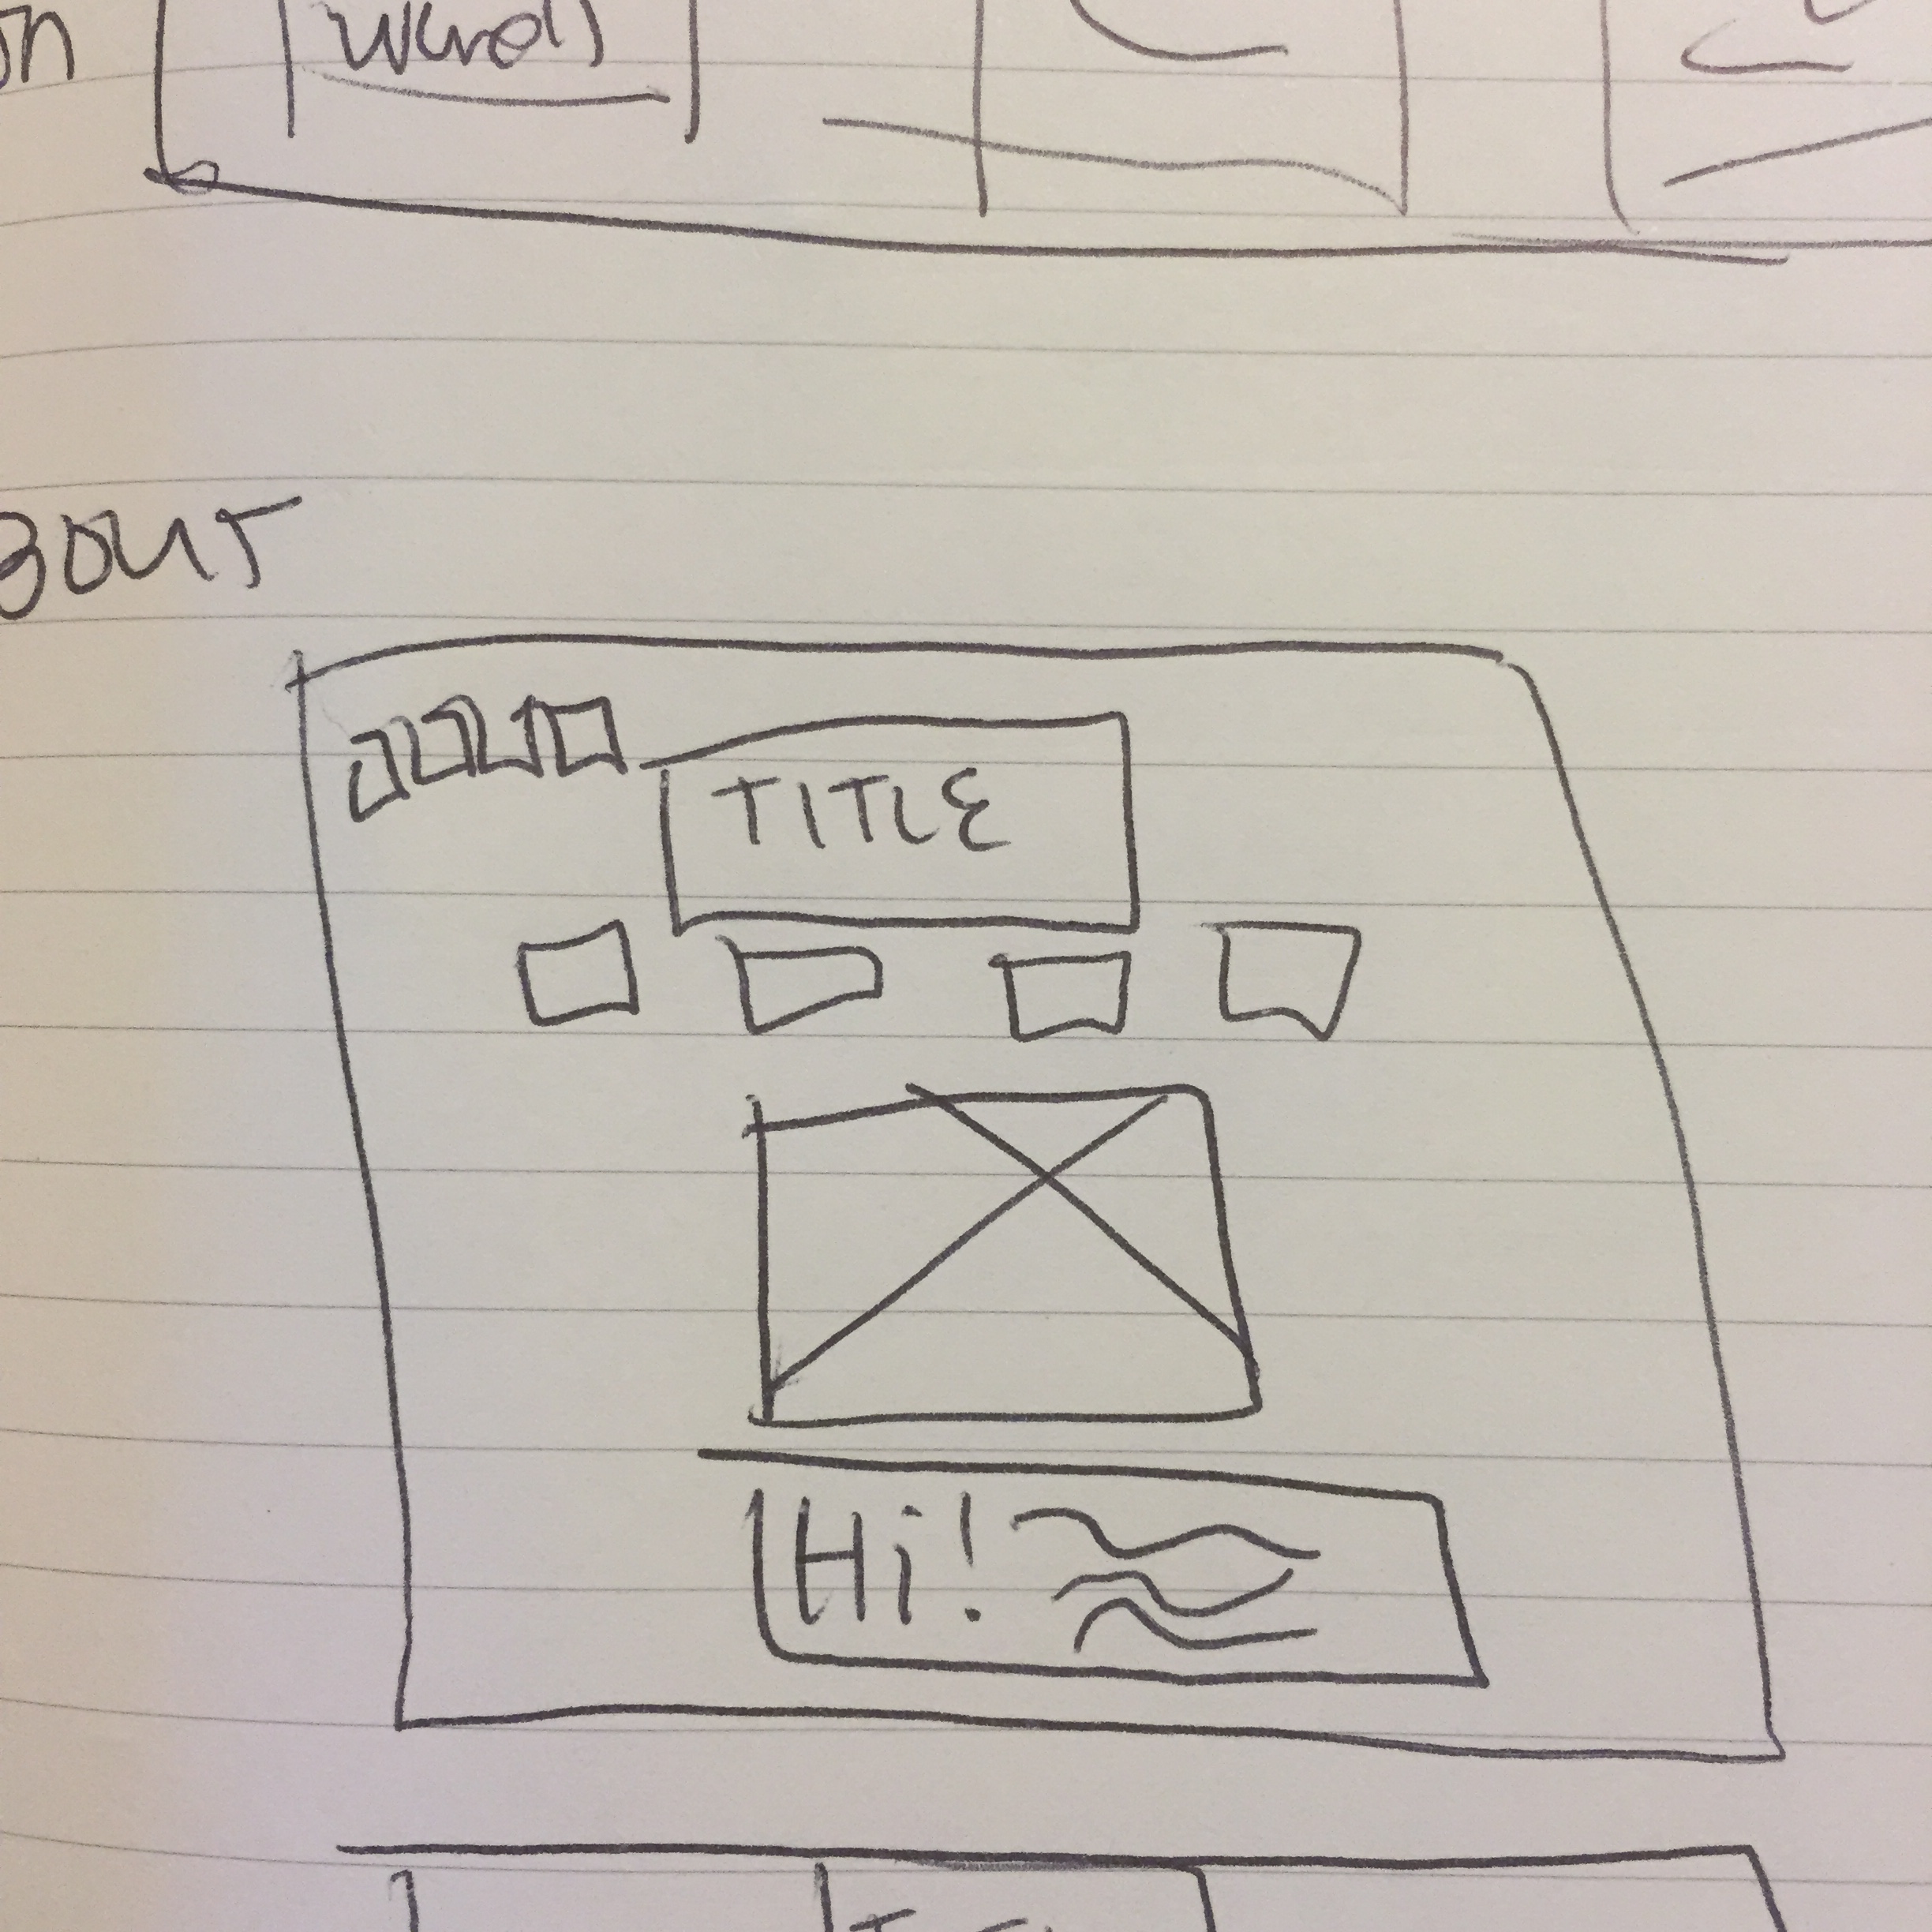 on
Words
BOUT
TITLE
Hi!